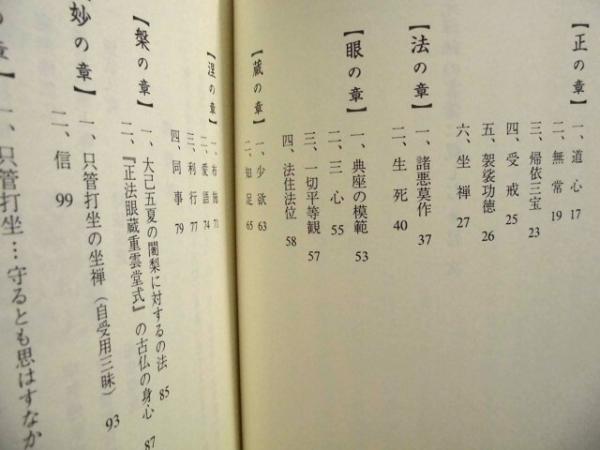 【正の章】
一、道心 17
二、無常 19
三、帰依三宝 23
四、受戒 25
五、袈裟功徳 26
六、坐禅 27
【法の章】
一、諸悪莫作 37
二、生死 40
【眼の章】
一、典座の模範 53
二、三心 55
三、一切平等観 57
四、法住法位 58
【蔵の章】
一、少欲 63
二、知足 65
【涅の章】
一、布施 71
二、愛語 74
三、利行 77
四、同事 79
【槃の章】
一、大己五夏の闍梨に対するの法 85
二、『正法眼蔵重雲堂式』の古仏の身心 87
【妙の章】
一、只管打坐の坐禅（自受用三昧） 93
二、信 99
の章】
一、只管打坐…守るとも思はすなか